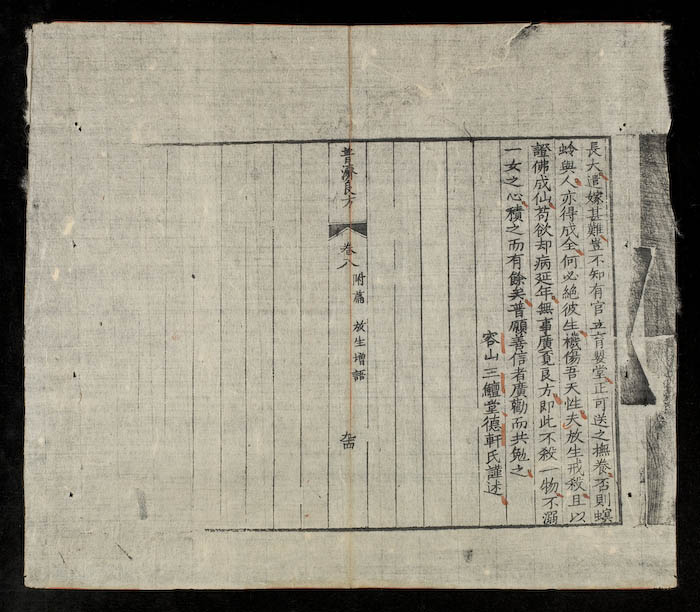 長大遣嫁甚難豈不知有官立育嬰堂正可送之撫養否則螟
蛉與人亦得成全何必絕彼生機傷吾天性夫放生戒殺且以
證佛成仙苟欲却病延年無事廣覓良方即此不殺一物不溺
一女之心積之而有餘矣普願善信者廣勸而共勉之
容山三鱣堂德軒氏謹述
普濟良方
卷八
附篇 放生增語